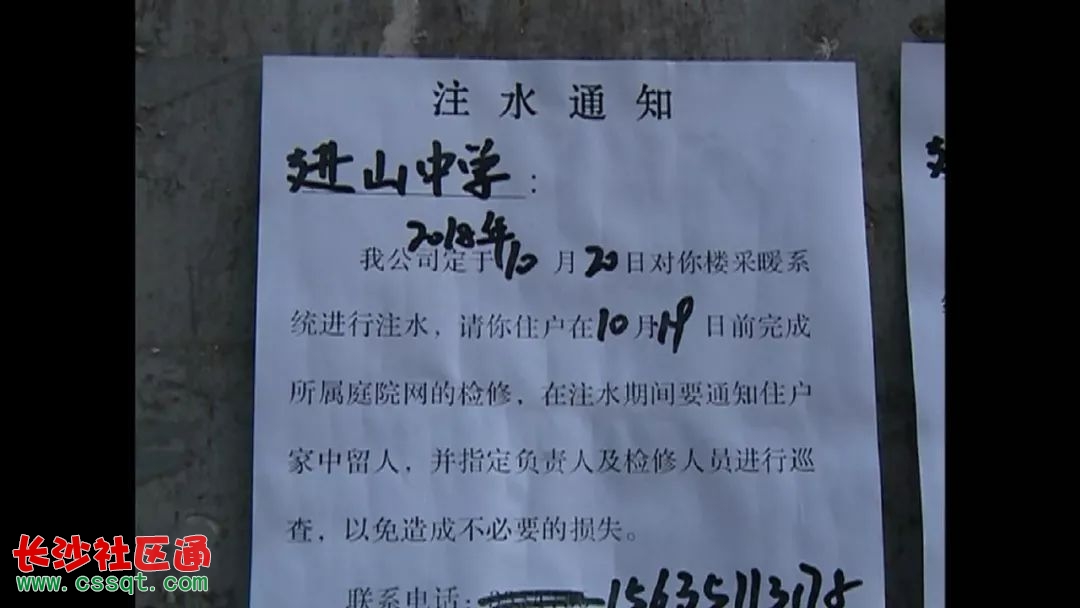 注水通知
进山中学:
2018年
我公司定于10月20日对你楼采暖系
统进行注水,请你住户在10月19日前完成
所属庭院网的检修,在注水期间要通知住户
家中留人,并指定负责人及检修人员进行巡
查,以免造成不必要的损失。
联系电话: 15635113178
长沙社区通
www.cssqt.com